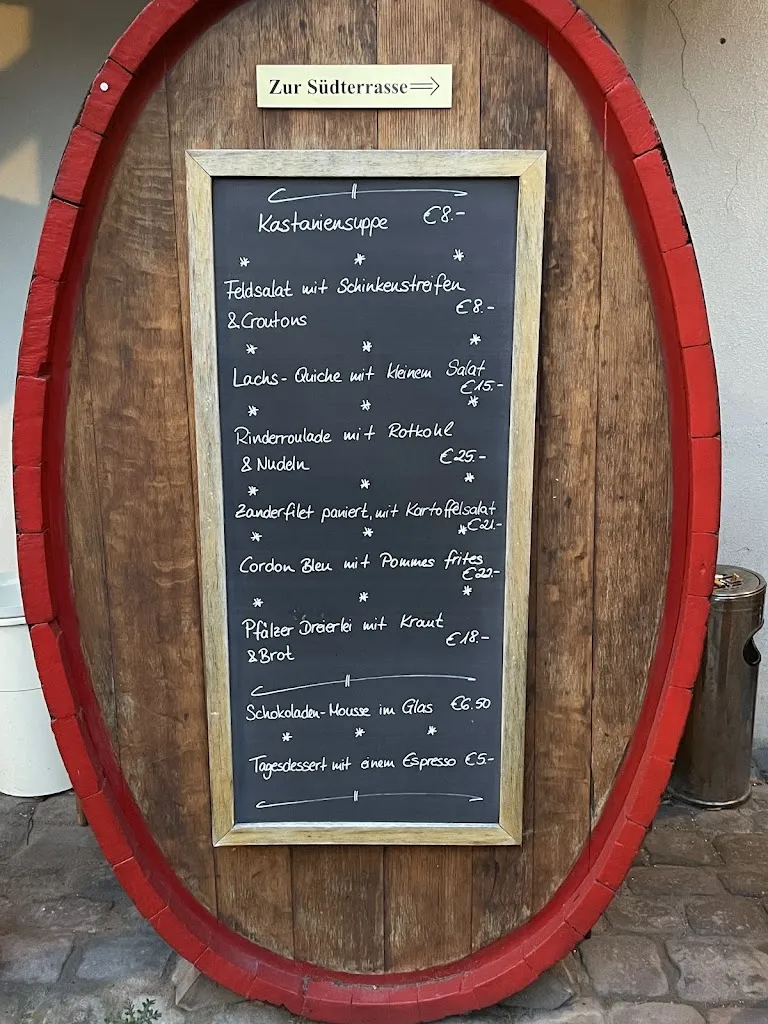 Zur Südterrasse⇒
Kastaniensuppe €8.-
* * *
Feldsalat mit Schinkenstreifen
€8.-
& Croutons
* * *
Lachs-Quiche mit kleinem Salat
€15.-
* * *
Rinderroulade mit Rotkohl
& Nudeln €25.-
* * *
Zanderfilet paniert, mit Kartoffelsalat
€21.-
* * *
Cordon Bleu mit Pommes frites
€22.-
* * *
Pfälzer Dreierlei mit Kraut
€18.-
& Brot
Schokoladen-Mousse im Glas €6.50
* * *
Tagesdessert mit einem Espresso €5.-